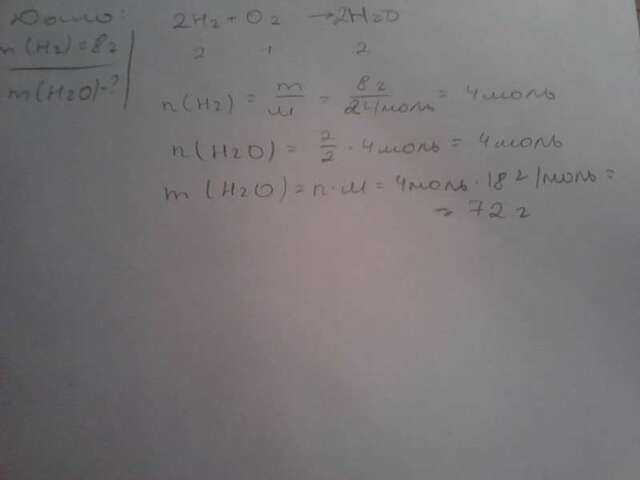 Дано:
m(H2)=8г
m(H2O)-?
2H2+O2 →2H2O
2 1 2
n(H2) = m/M = 8г/2г/моль = 4моль
n(H2O) = 2/2 · 4моль = 4моль
m(H2O)=n·M=4моль·18г/моль=
=72г